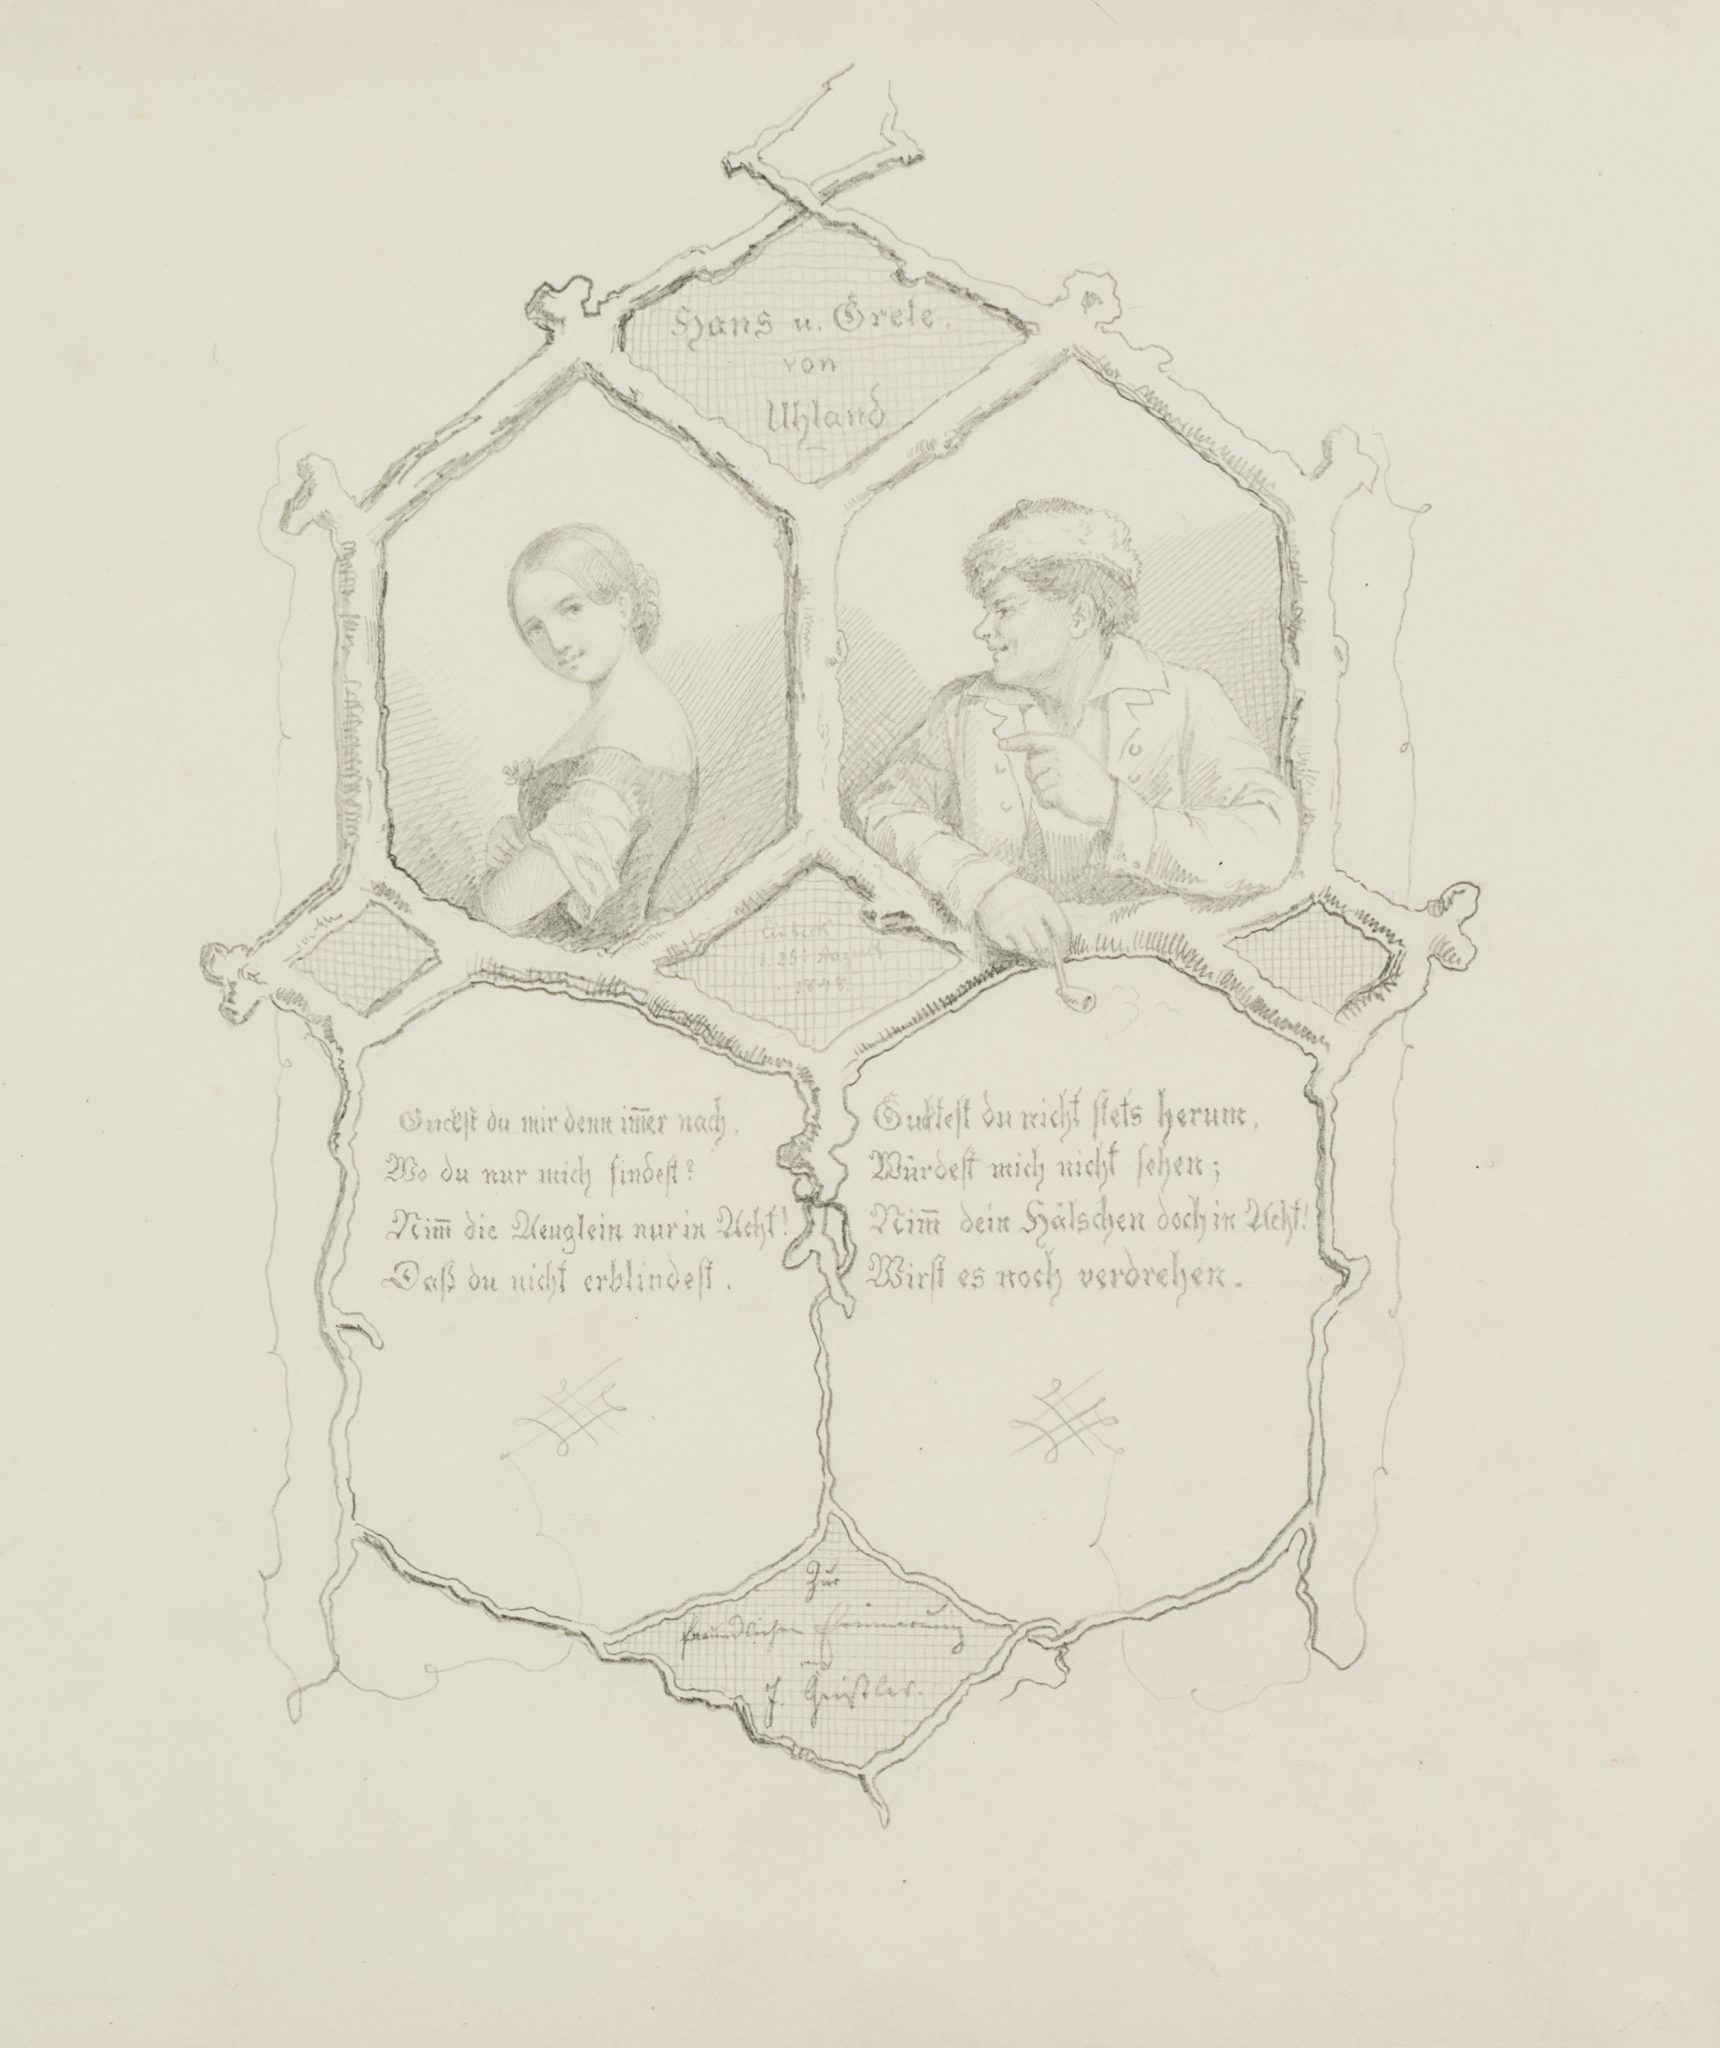 Hans u. Grete.
von
Uhland
Einbeck
d. 25t August
1848.
Guckst du mir denn im̅er nach,
Wo du nur mich findest?
Nim̅ die Aeuglein nur in Acht!
Daß du nicht erblindest.
Gucktest du nicht stets herum,
Würdest mich nicht sehen;
Nim̅ dein Hälschen doch in Acht!
Wirst es noch verdrehen.
Zur
freundlichen Erinnerung
von
J. Geißler.